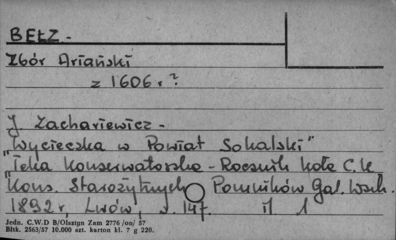 BEŁZ -
Zbór Ariański
z 1606 r.?
J Zachariewicz -
"Wycieczka w Powiat Sokalski"
"Teka Konserwatorska - Rocznik Koła C.K
Kons. Starożytnych Pomników Gal. Wsch.
1892 r, Lwów. s. 147. il 1
Jedn. C.W.D B/Olsztyn Zam 2776/oo/ 57
Bltk. 2563/57 10.000 szt. karton kl. 7 g 220.